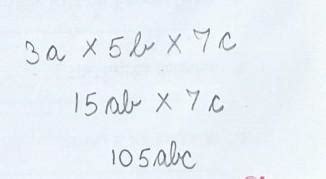 3a × 5b × 7c
15ab × 7c
105abc